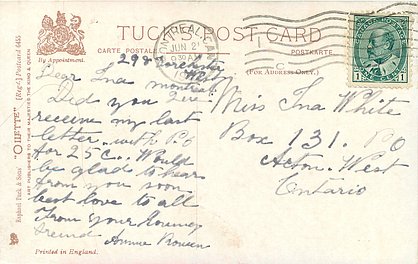 TUCK'S POST CARD
CARTE POSTALE.
POSTKARTE.
By Appointment.
(FOR ADDRESS ONLY.)
MONTREAL CAN
JUN 2
CANADA POSTAGE
1 1
Raphael Tuck & Sons' "OILETTE" [Regd.] Postcard 6455
ART PUBLISHERS TO THEIR MAJESTIES THE KING & QUEEN
298
West
Dear Ina Montreal
Did you
receive my last
letter with P.O
for 25c. Would
be glad to hear
from you soon
best love to all
from your loving
friend
Annie
Miss Ina White
Box 131. P.O
Acton West
Ontario
Printed in England.